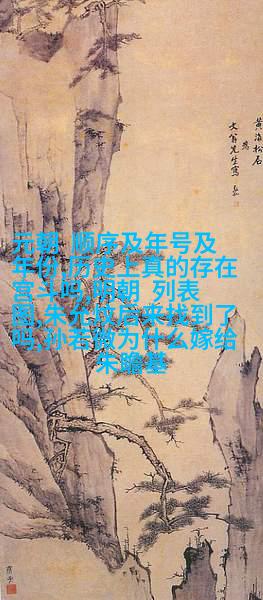 黄海松石
元朝 顺序及年号及
年份,历史上真的存在
宫斗吗,明朝 列表
图,朱允炆后来找到了
吗,孙若微为什么嫁给
朱瞻基